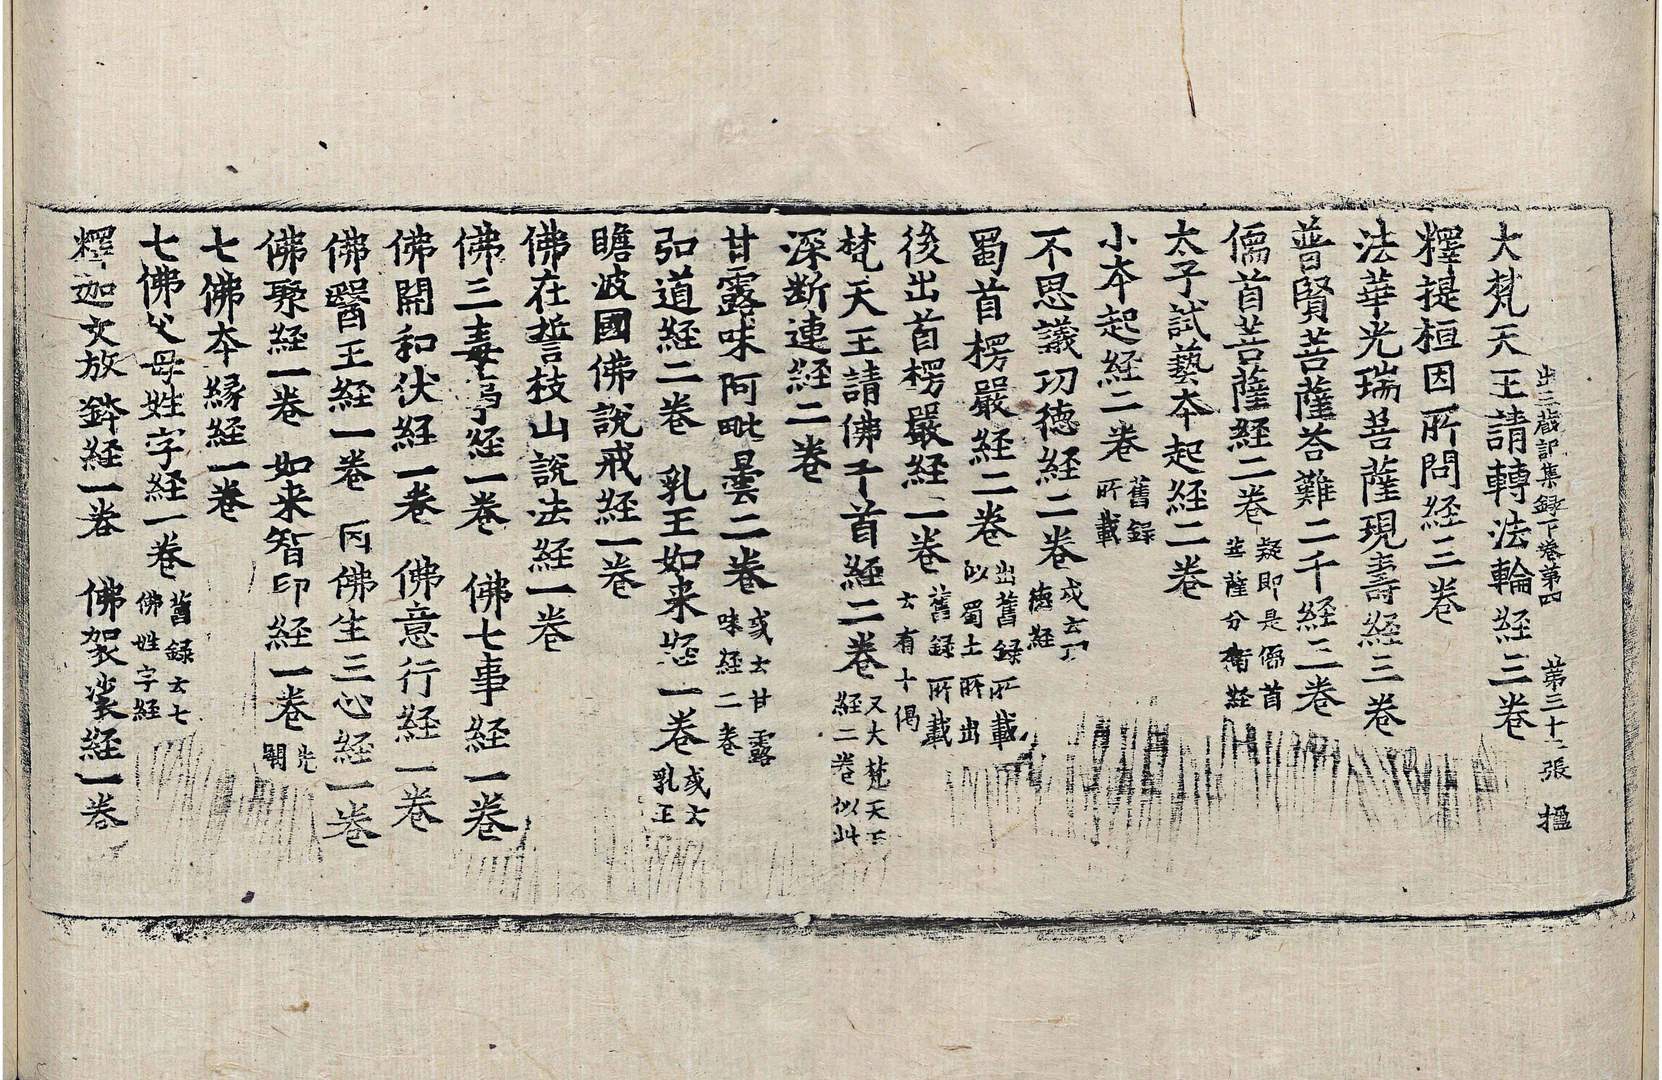 出三蔵記集録下卷第四　第三十二張　摳
大梵天王請轉法輪経三卷
釋提桓因所問経三卷
法華光瑞菩薩現壽経三卷
普賢菩薩荅難二千経三卷
儒首菩薩経二卷 疑即是儒首菩薩分衛経
太子試藝本起経二卷
小本起経二卷 舊録所載
不思議功德経二卷 或云功德経
蜀首楞嚴経二卷 出舊録所載似蜀土所出
後出首楞嚴経二卷 舊録所載云有十偈
梵天王請佛千首経二卷 又大梵天王経二卷似此
深斷連経二卷
甘露味阿毗曇二卷 或云甘露味経二卷
弘道経二卷　乳王如来経一卷 或云乳王
瞻波國佛說戒経一卷
佛在誓枝山說法経一卷
佛三毒事経一卷　佛七事経一卷
佛開和伏経一卷　佛意行経一卷
佛醫王経一卷　丙佛生三心経一卷
佛聚経一卷　如来智印経一卷 光閞
七佛本縁経一卷
七佛父母姓字経一卷 舊録云七佛姓字経
釋迦文放鉢経一卷　佛袈裟経一卷